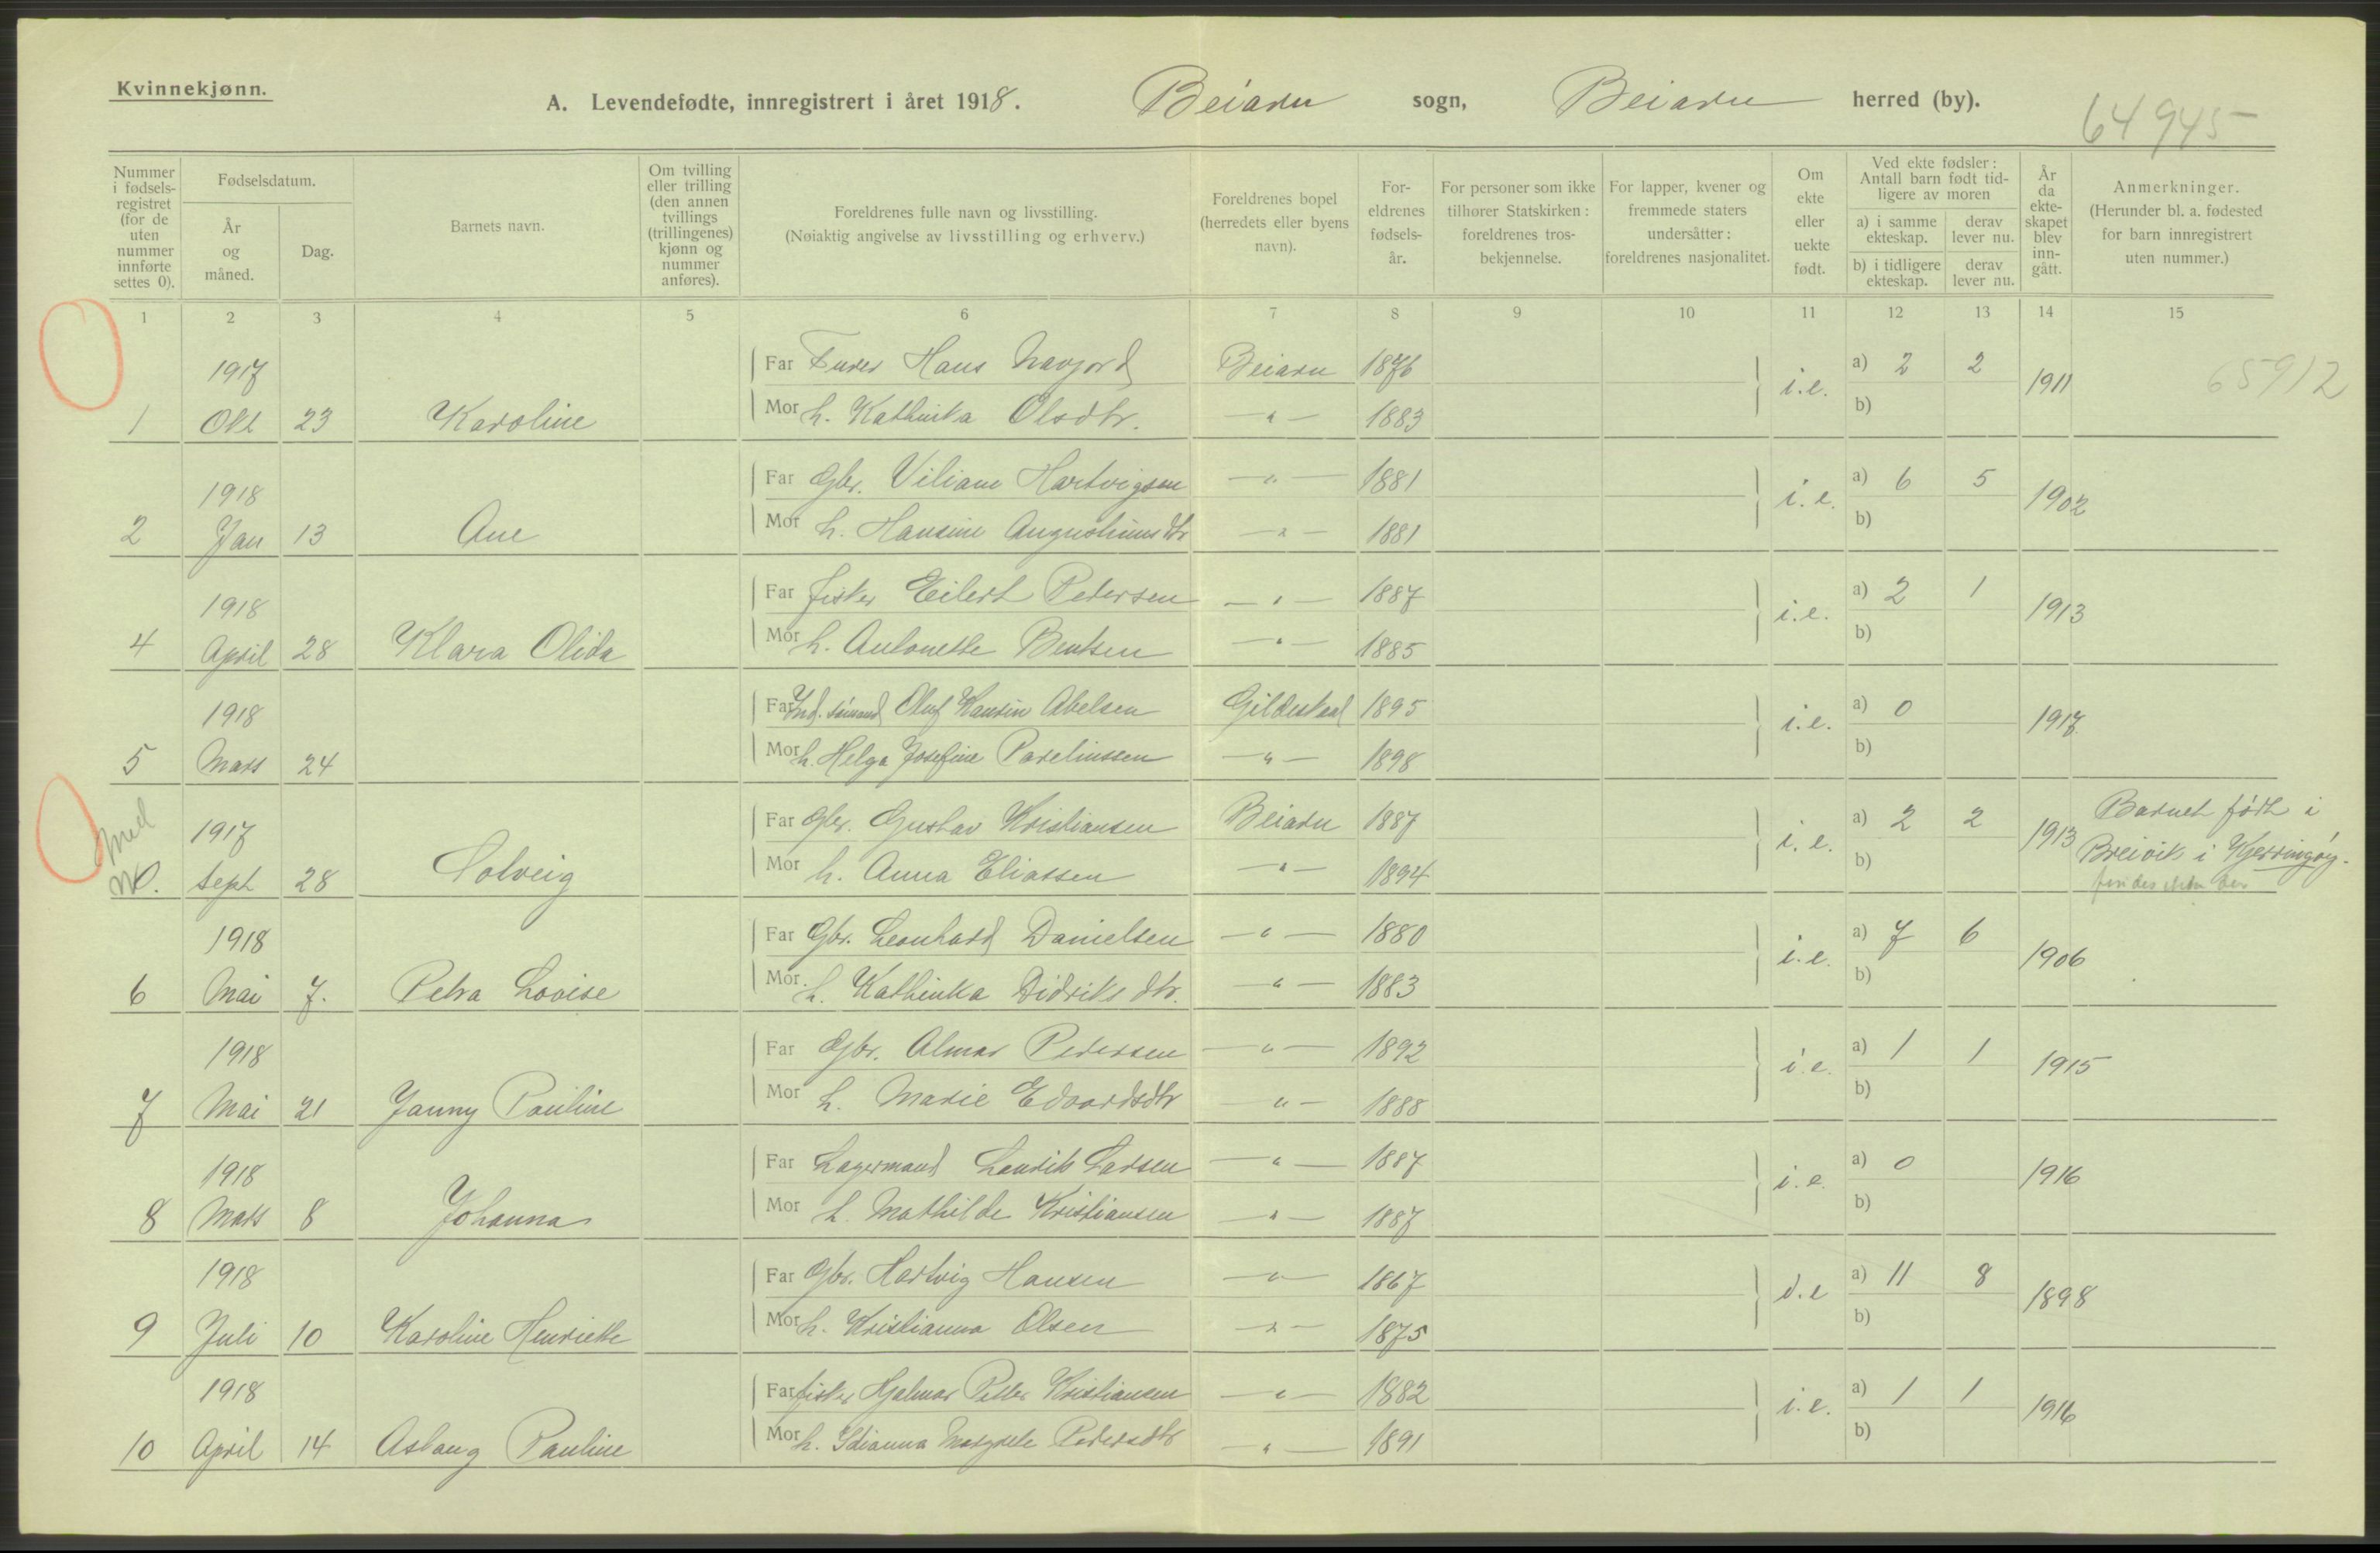 Kvinnekjønn.
A. Levendefødte, innregistrert i året 1918. Beiarn sogn, Beiarn herred (by).
64945
Nummer i fødselsregistret (for de uten nummer innførte settes 0).
Fødselsdatum.
År og måned.
Dag.
Barnets navn.
Om tvilling eller trilling (den annen tvillings (trillingenes) kjønn og nummer anføres).
Foreldrenes fulle navn og livsstilling.
(Nøiaktig angivelse av livsstilling og erhverv.)
Foreldrenes bopel (herredets eller byens navn).
Foreldrenes fødselsår.
For personer som ikke tilhører Statskirken: foreldrenes trosbekjennelse.
For lapper, kvener og fremmede staters undersåtter: foreldrenes nasjonalitet.
Om ekte eller uekte født.
Ved ekte fødsler: Antall barn født tidligere av moren
a) i samme ekteskap. derav lever nu.
b) i tidligere ekteskap. derav lever nu.
År da ekteskapet blev inngått.
Anmerkninger.
(Herunder bl. a. fødested for barn innregistrert uten nummer.)
1 2 3 4 5 6 7 8 9 10 11 12 13 14 15
1917 Far Hans Navjord Beiarn 1876 i.e. a) 2 2 1911 65912
1 Okt 23 Karoline Mor h. Kathinka Olsdtr. -"- 1883 b)
1918 Far Gbr. Viliam Hartvigsen -"- 1881 i.e. a) 6 5 1902
2 Jan 13 Ane Mor h. Hansine Augustinusdtr -"- 1881 b)
1918 Far fisker Eilert Petersen -"- 1887 i.e. a) 2 1 1913
4 April 28 Klara Olida Mor h. Antonette Bentsen -"- 1885 b)
1918 Far Ind. sømand Oluf Hansin Abelsen Gildeskaal 1895 i.e. a) 0 1917
5 Mars 24 Mor h. Helga Josefine Pareliussen -"- 1898 b)
med 1917 Far Gbr. Gustav Kristiansen Beiarn 1887 i.e. a) 2 2 1913 Barnet født i
Sept 28 Solveig Mor h. Anna Eliassen -"- 1894 b) Breivik i Kjerringøy.
findes ikke der
1918 Far Gbr. Leonhard Danielsen -"- 1880 i.e. a) 7 6 1906
6 Mai 7. Petra Lovise Mor h. Kathinka Didriksdtr. -"- 1883 b)
1918 Far Gbr. Almar Pedersen -"- 1892 i.e. a) 1 1 1915
7 Mai 21 Janny Pauline Mor h. Marie Edvardsdtr -"- 1888 b)
1918 Far Lagermand Laurits Larsen -"- 1887 i.e. a) 0 1916
8 Mars 8 Johanna Mor h. Mathilde Kristiansen -"- 1887 b)
1918 Far Gbr. Hartvig Hansen -"- 1867 i.e a) 11 8 1898
9 Juli 10 Karoline Henriette Mor h. Kristianna Olsen -"- 1875 b)
1918 Far fisker Hjalmar Peller Kristiansen -"- 1882 i.e. a) 1 1 1916
10 April 14 Aslaug Pauline Mor h. Idianna Margrete Pedersdtr -"- 1891 b)